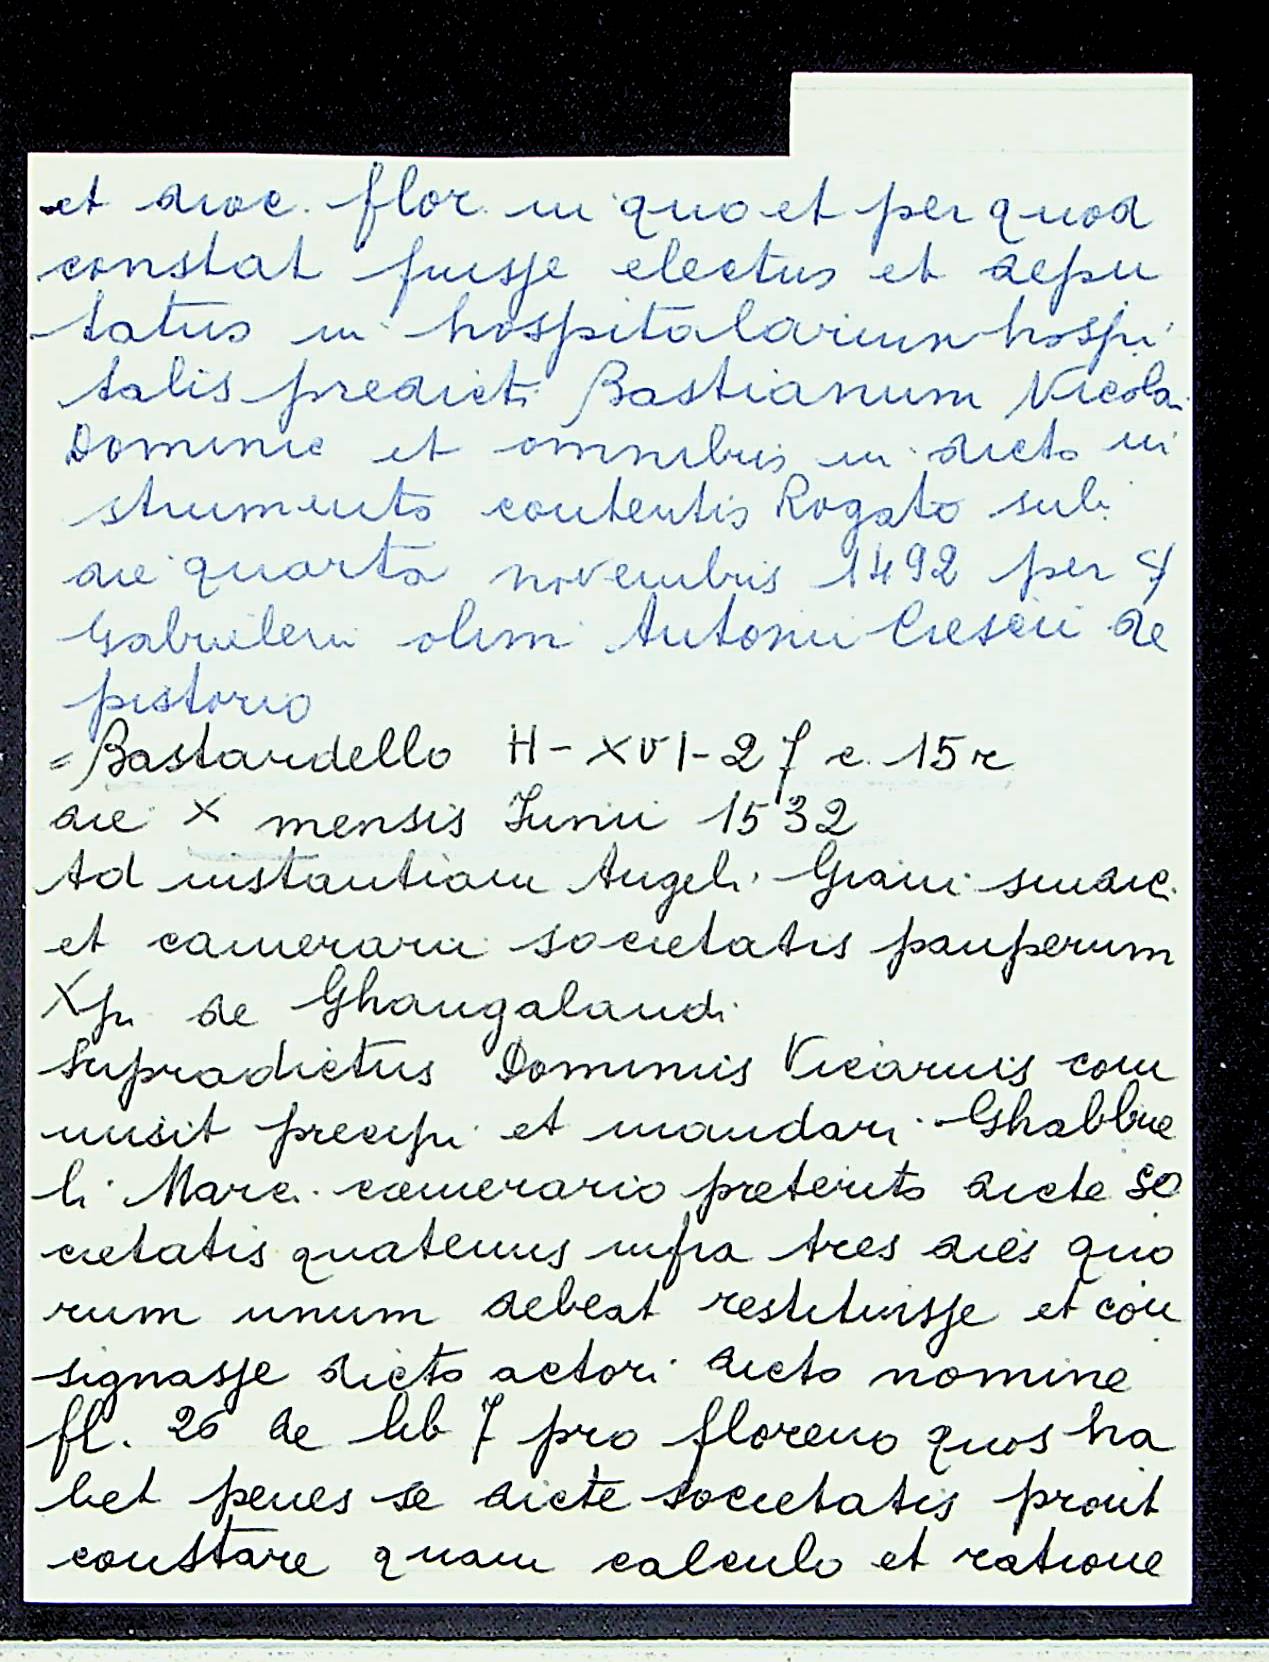 et dioc. flor. in quo et per quod
constat fuisse electus et depu
tatus in hospitalarium hospi
talis predicti Bastianum Nicolai
Dominic et omnibus in dicto in
strumento contentis Rogato sub
die quarta novembris 1492 per S
Gabrielem olim Antonii Crescii de
pistorio
= Bastardello H-XVI-27 c. 15r
die X mensis Junii 1532
Ad instantiam Angeli Grani sindic.
et camerarii societatis pauperum
Xpi de Ghangalandi
Supradictus Dominus Vicarius com
misit precipi et mandari Ghabbrie
li Marci camerario preterito dicte so
cietatis quatenus infra tres dies quo
rum unum debeat restituisse et con
signasse dicto actori dicto nomine
fl. 26 de lib 7 pro floreno quos ha
bet penes se dicte societatis prout
constare quam calculo et ratione